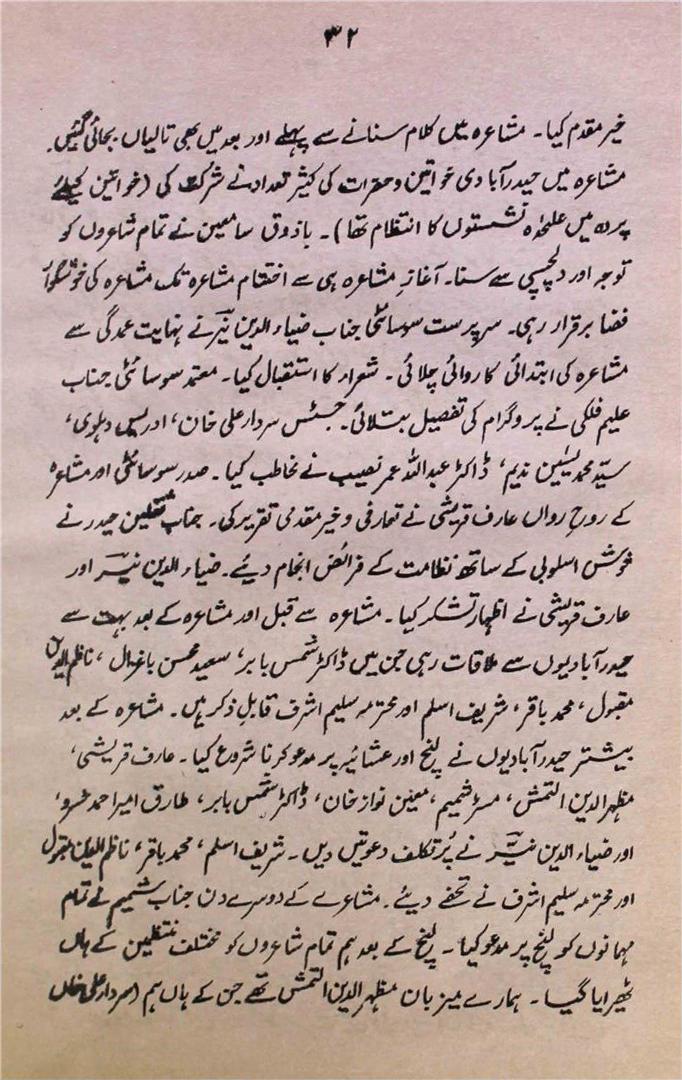 ۳۲
خیر مقدم کیا۔ مشاعرہ میں کلام سنانے سے پہلے اور بعد میں بھی تالیاں بجائی گئیں۔
مشاعرہ میں حیدرآبادی خواتین و حضرات کی کثیر تعداد نے شرکت کی (خواتین کیلئے
پردہ میں علحٰدہ نشستوں کا انتظام تھا)۔ باذوق سامعین نے تمام شاعروں کو
توجہ اور دلچسپی سے سنا۔ آغازِ مشاعرہ ہی سے اختتام مشاعرہ تک مشاعرہ کی خوشگوار
فضا برقرار رہی۔ سرپرست سوسائٹی جناب ضیاء الدین نیّر نے نہایت عمدگی سے
مشاعرہ کی ابتدائی کاروائی چلائی۔ شعراء کا استقبال کیا۔ معتمد سوسائٹی جناب
علیم فلکی نے پروگرام کی تفصیل بتلائی۔ جسٹس سردار علی خان، ادریس دہلوی،
سیّد محمد یٰسین ندیم، ڈاکٹر عبداللہ عمر نصیب نے مخاطب کیا۔ صدر سوسائٹی اور مشاعرہ
کے روحِ رواں عارف قریشی نے تعارفی و خیر مقدمی تقریر کی۔ جناب ثقلین حیدر نے
خوش اسلوبی کے ساتھ نظامت کے فرائض انجام دیئے۔ ضیاء الدین نیّر اور
عارف قریشی نے اظہارِ تشکر کیا۔ مشاعرہ سے قبل اور مشاعرہ کے بعد بہت سے
حیدرآبادیوں سے ملاقات رہی جن میں ڈاکٹر شمس بابر، سعید محسن باغزال، ناظم الدین
مقبول، محمد باقر، شریف اسلم اور محترمہ سلیم اشرف قابلِ ذکر ہیں۔ مشاعرہ کے بعد
بیشتر حیدرآبادیوں نے لنچ اور عشائیہ پر مدعو کرنا شروع کیا۔ عارف قریشی،
مظہر الدین التمش، مسز شمیم، معین نواز خان، ڈاکٹر شمس بابر، طارق امیر احمد خسرو،
اور ضیاء الدین نیّر نے پُرتکلف دعوتیں دیں۔ شریف اسلم، محمد باقر، ناظم الدین مقبول
اور محترمہ سلیم اشرف نے تحفے دیئے۔ مشاعرے کے دوسرے دن جناب شمیم نے تمام
مہمانوں کو لنچ پر مدعو کیا۔ لنچ کے بعد ہم تمام شاعروں کو مختلف منتظمین کے ہاں
ٹھیرایا گیا۔ ہمارے میزبان مظہر الدین التمش تھے جن کے ہاں ہم (سردار علی خاں